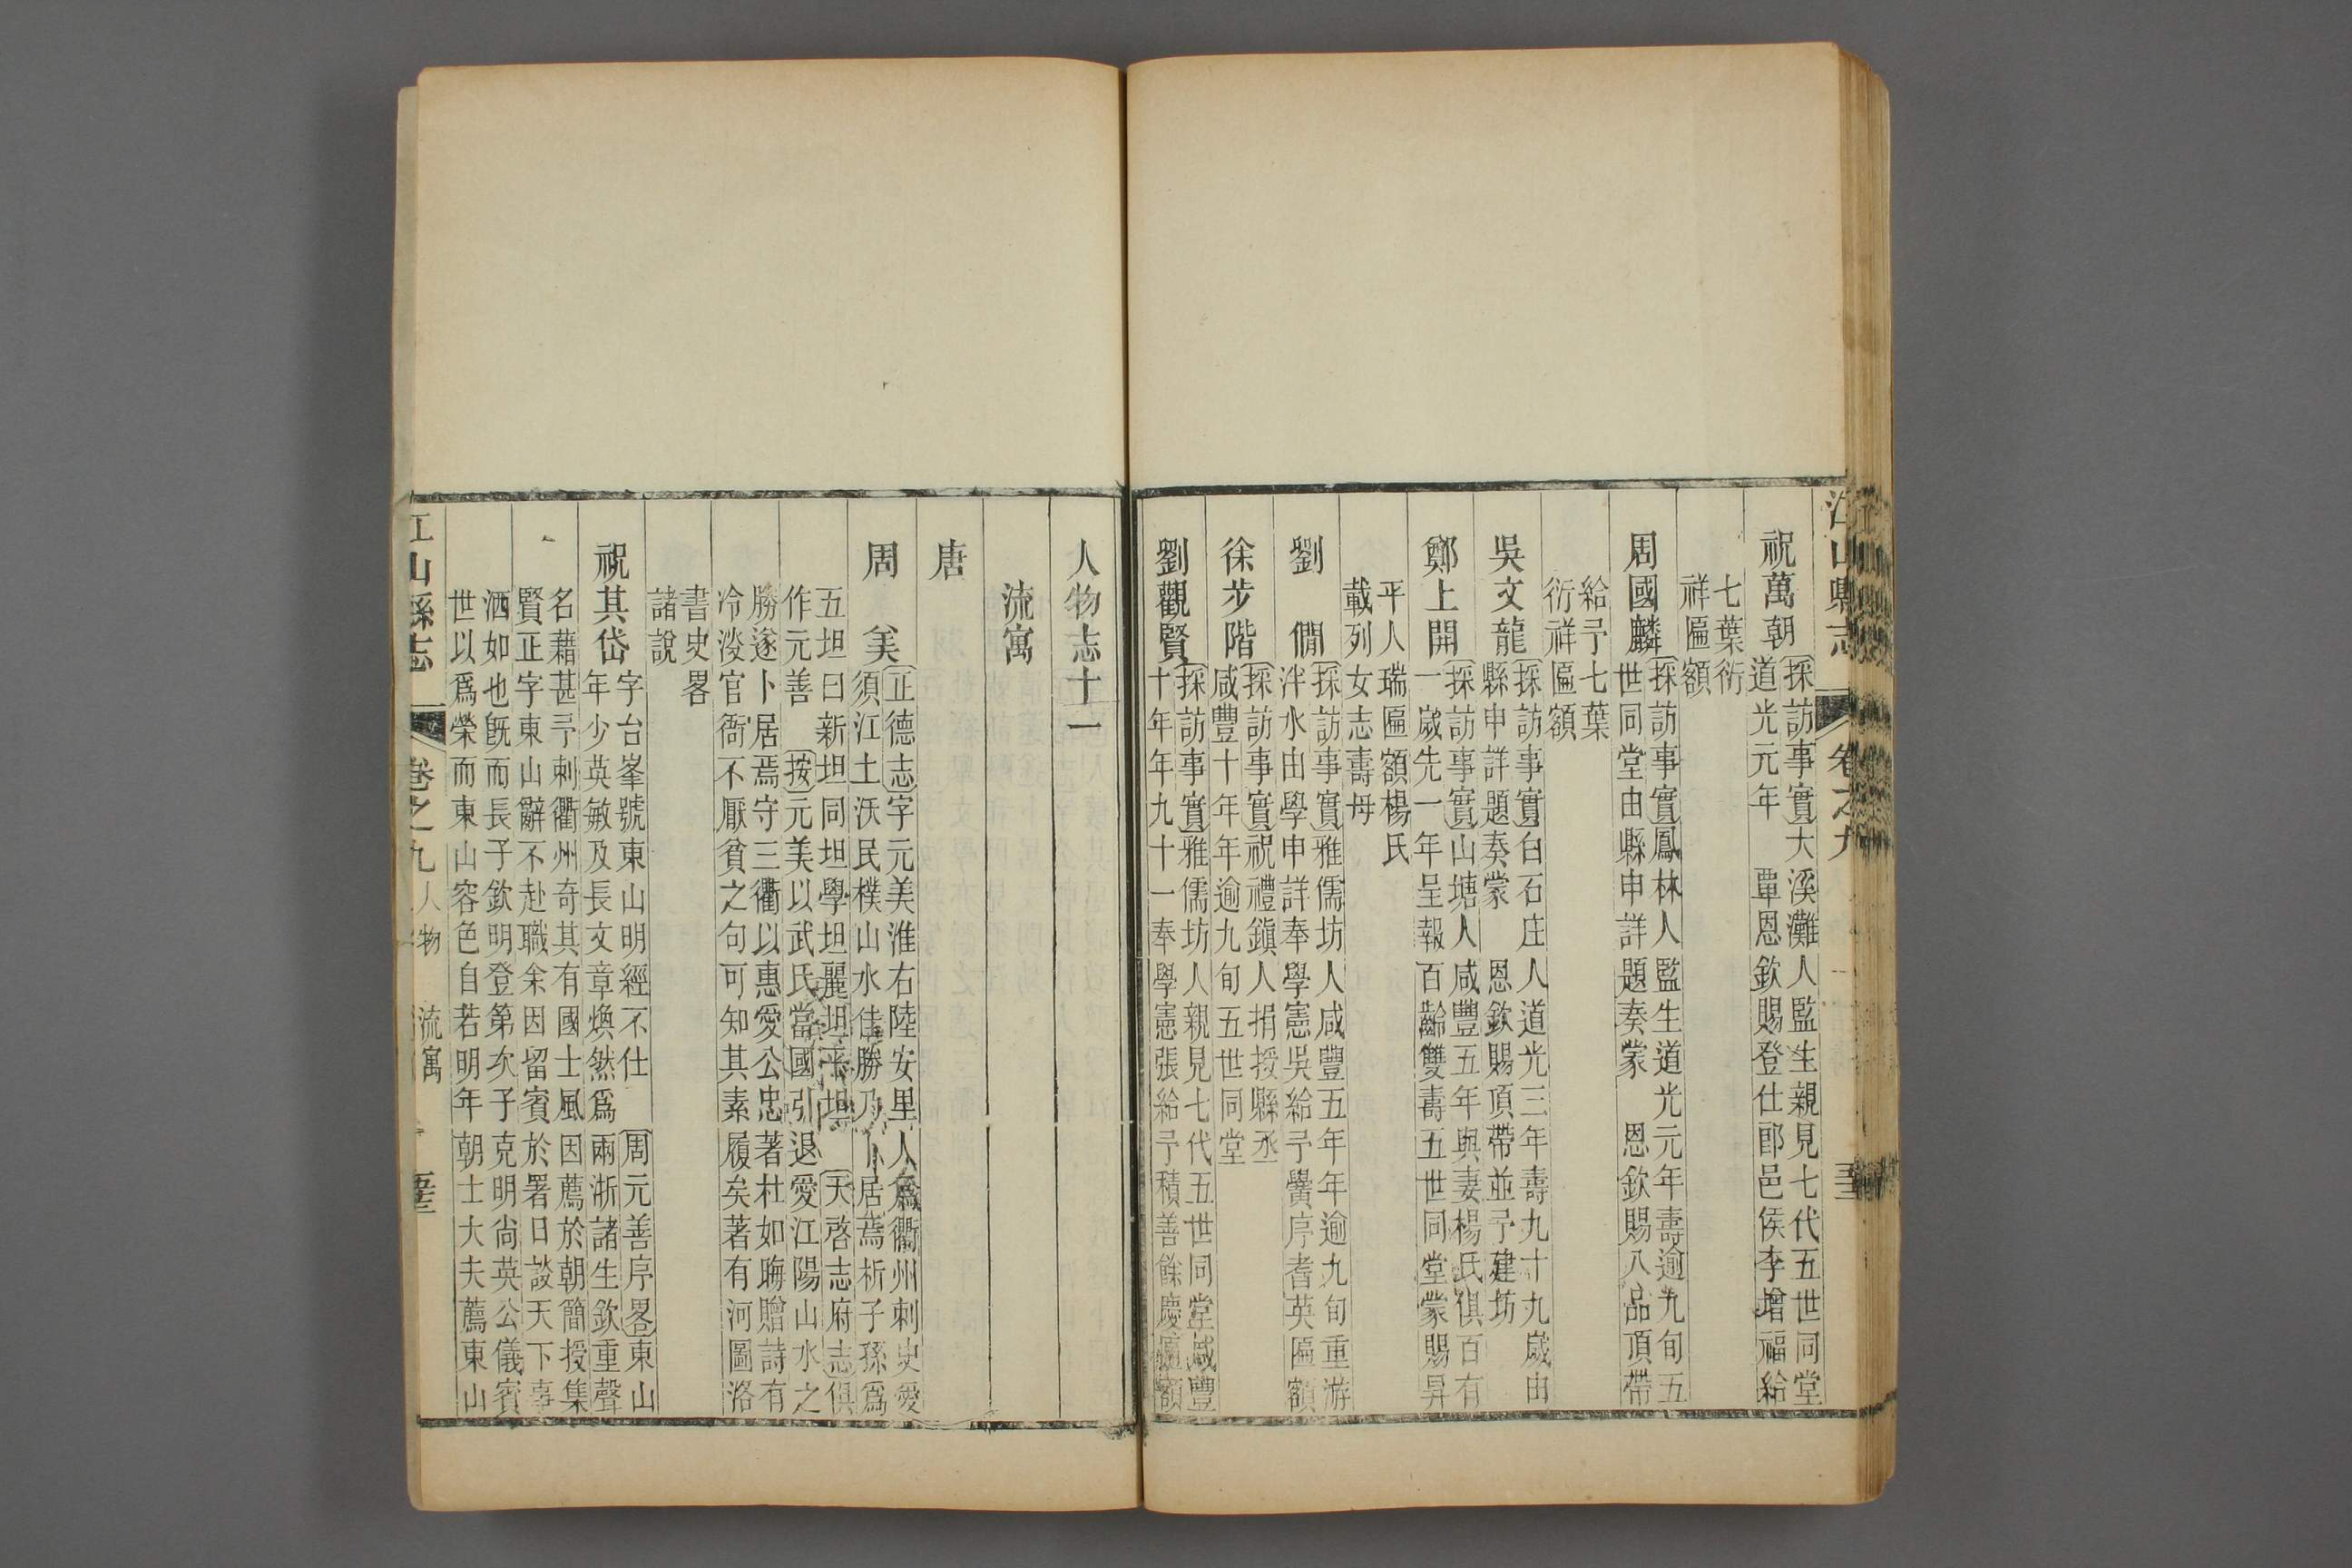 江山縣志
卷之九
祝萬朝
採訪事實大溪灘人監生親見七代五世同堂
道光元年　覃恩欽賜登仕郎邑侯李增福給
七葉衍
祥匾額
周國麟
採訪事實鳳林人監生道光元年壽逾九旬五
世同堂由縣申詳題奏蒙　恩欽賜八品頂帶
給予七葉
衍祥匾額
吳文龍
採訪事實白石庄人道光三年壽九十九歲由
縣申詳題奏蒙　恩欽賜頂帶並予建坊
鄭上開
採訪事實山塘人咸豐五年與妻楊氏俱百有
一歲先一年呈報百齡雙壽五世同堂蒙賜昇
平人瑞匾額楊氏
載列女志壽母
劉　僩
採訪事實雅儒坊人咸豐五年年逾九旬重游
泮水由學申詳奉學憲吳給予黌序耆英匾額
徐步階
採訪事實祝禮鎮人捐授縣丞
咸豐十年年逾九旬五世同堂
劉觀賢
採訪事實雅儒坊人親見七代五世同堂咸豐
十年年九十一奉學憲張給予積善餘慶匾額
人物志十一
流寓
唐
周　美
正德志字元美淮右陸安里人為衢州刺史愛
須江土沃民樸山水佳勝乃卜居焉析子孫爲
五坦曰新坦同坦學坦麗坦平坦　天啓志府志俱
作元善　按元美以武氏當國引退愛江陽山水之
勝遂卜居焉守三衢以惠愛公忠著杜如晦贈詩有
冷淡官衙不厭貧之句可知其素履矣著有河圖洛
書史畧
諸說
祝其岱
字台峯號東山明經不仕　周元善序畧東山
年少英敏及長文章煥然爲兩浙諸生欽重聲
名藉甚予刺衢州奇其有國士風因薦於朝簡授集
賢正字東山辭不赴職余因留賓於署日談天下事
洒如也旣而長子欽明登第次子克明尚英公儀賓
世以爲榮而東山容色自若明年朝士大夫薦東山
江山縣志
卷之九
人物　流寓